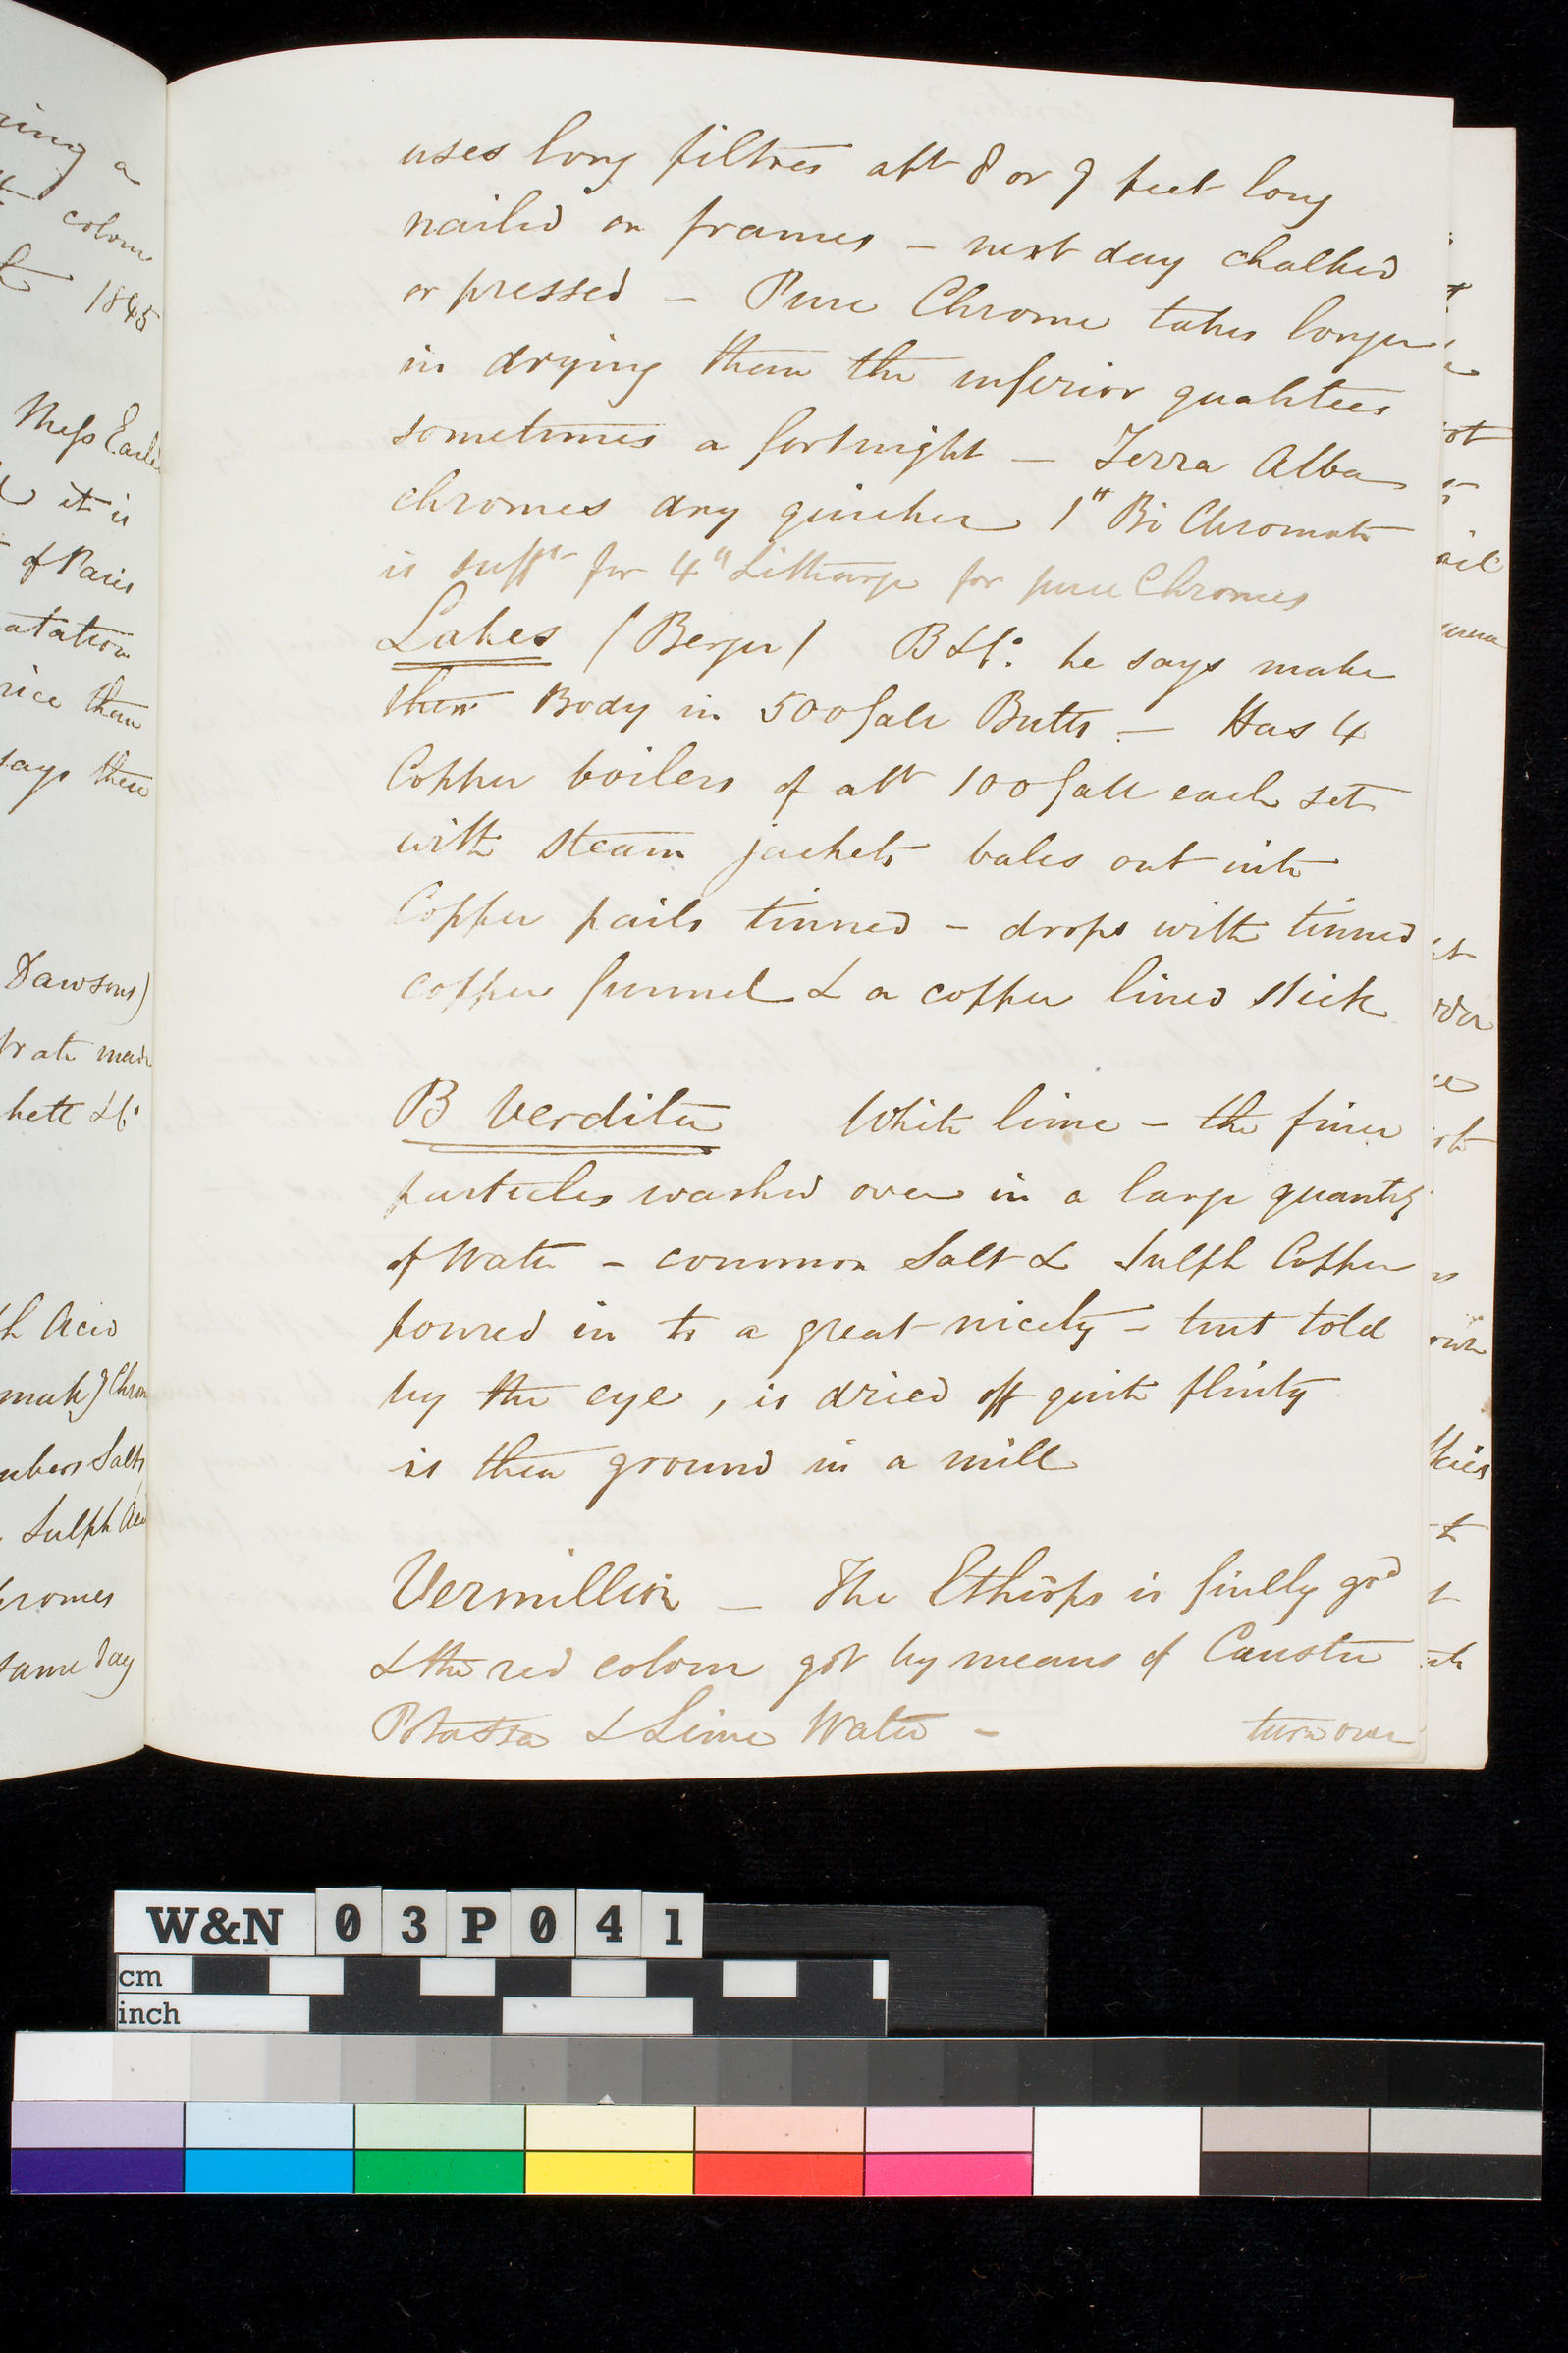 ning a
colour
1845
Messrs
it is
of Paris
atation
rice than
says then
Dawsons)
rate made
hett & Co
h Acid
mak
ubers Salts
Sulph
hromes
same day
uses long filtres abt 8 or 9 feet long
nailed on frames – next day chalked
or pressed – Pure Chrome takes longer
in drying than the inferior qualitees
sometimes a fortnight – Terra Alba
chromes dry quicker 1" Bi Chromate
is sufft for 4" Litharge for pure Chromes
Lakes (Berger) B & Co. he says make
their Body in 500 Gall Butts – Has 4
Copper boilers of abt 100 Gall each set
with steam jackets bales out into
Copper pails tinned – drops with tinned
copper funnel & a copper lined stick
B Verditer White lime – the finer
particles washed over in a large quantity
of Water – common Salt & Sulph Copper
poured in to a great nicety – tint told
by the eye, is dried off quite flinty
is then ground in a mill
Vermillion – The Ethiops is finely grd
& the red colour got by means of Caustic
Potassa & Lime Water – turn over
W&N 03P041
cm
inch